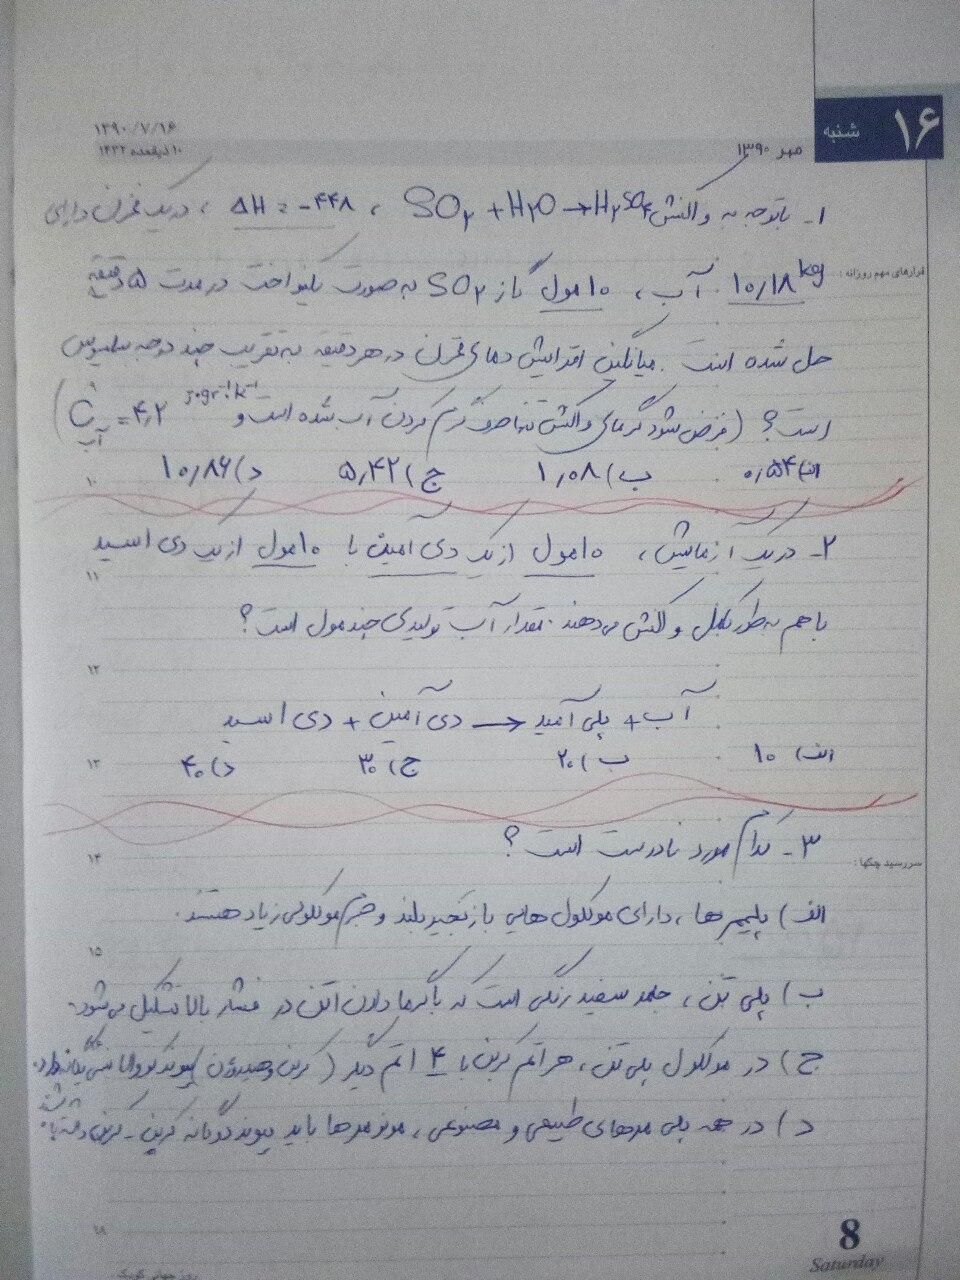 ۱۶ شنبه
مهر ۱۳۹۰
۱۳۹۰/۷/۱۶
۱۰ ذیقعده ۱۴۳۲
۱- باتوجه به واکنش SO۳ + H۲O → H۲SO۴ ، ΔH = -۴۴۸ ، در یک مخزن دارای
قرارهای مهم روزانه :
۱۰٫۱۸ kg آب ، ۱۰ مول گاز SO۳ به صورت یکنواخت در مدت ۵ دقیقه
حل شده است . میانگین افزایش دمای مخزن در هر دقیقه به تقریب چند درجه سلسیوس
است ؟ (فرض شود گرمای واکنش تنها صرف گرم کردن آب شده است و C آب = ۴٫۲ J.gr⁻¹.k⁻¹)
الف) ۰٫۵۴ ب) ۱٫۰۸ ج) ۵٫۴۲ د) ۱۰٫۸۶
۱۰
۲- در یک آزمایش ، ۱۰ مول از یک دی آمین با ۱۰ مول از یک دی اسید
۱۱
با هم به طور کامل واکنش می دهند . مقدار آب تولیدی چند مول است ؟
۱۲
آب + پلی آمید ← دی آمین + دی اسید
الف) ۱۰ ب) ۲۰ ج) ۳۰ د) ۴۰
۱۳
۳- کدام مورد نادرست است ؟
۱۴
سررسید چکها :
الف) پلیمرها ، دارای مولکول هایی با زنجیر بلند و جرم مولکولی زیاد هستند .
۱۵
ب) پلی تن ، جامد سفید رنگی است که با گرما دادن اتن در فشار بالا تشکیل می شود .
ج) در مولکول پلی تن ، هر اتم کربن با ۴ اتم دیگر (کربن و هیدروژن) پیوند کووالانسی یگانه دارد .
د) در همه پلی مرهای طبیعی و مصنوعی ، مونومرها باید پیوند دوگانه کربن - کربن داشته باشند
۱۸
8
Saturday